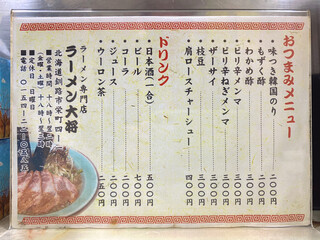 おつまみメニュー
・味つき韓国のり 二〇〇円
・もずく酢 二〇〇円
・わかめ酢 二〇〇円
・ピリ辛メンマ 三〇〇円
・ピリ辛ねぎメンマ 三〇〇円
・ザーサイ 三〇〇円
・枝豆 三〇〇円
・肩ロースチャーシュー 四〇〇円
ドリンク
・日本酒(一合) 五〇〇円
・ビール 七〇〇円
・コーラ 二〇〇円
・ジュース 二〇〇円
・ウーロン茶 二五〇円
ラーメン専門店
ラーメン大将
北海道釧路市栄町四ー二
■営業時間 十八時～翌二時
金曜・土曜 十八時～翌三時
■定休日 日曜日
■電話